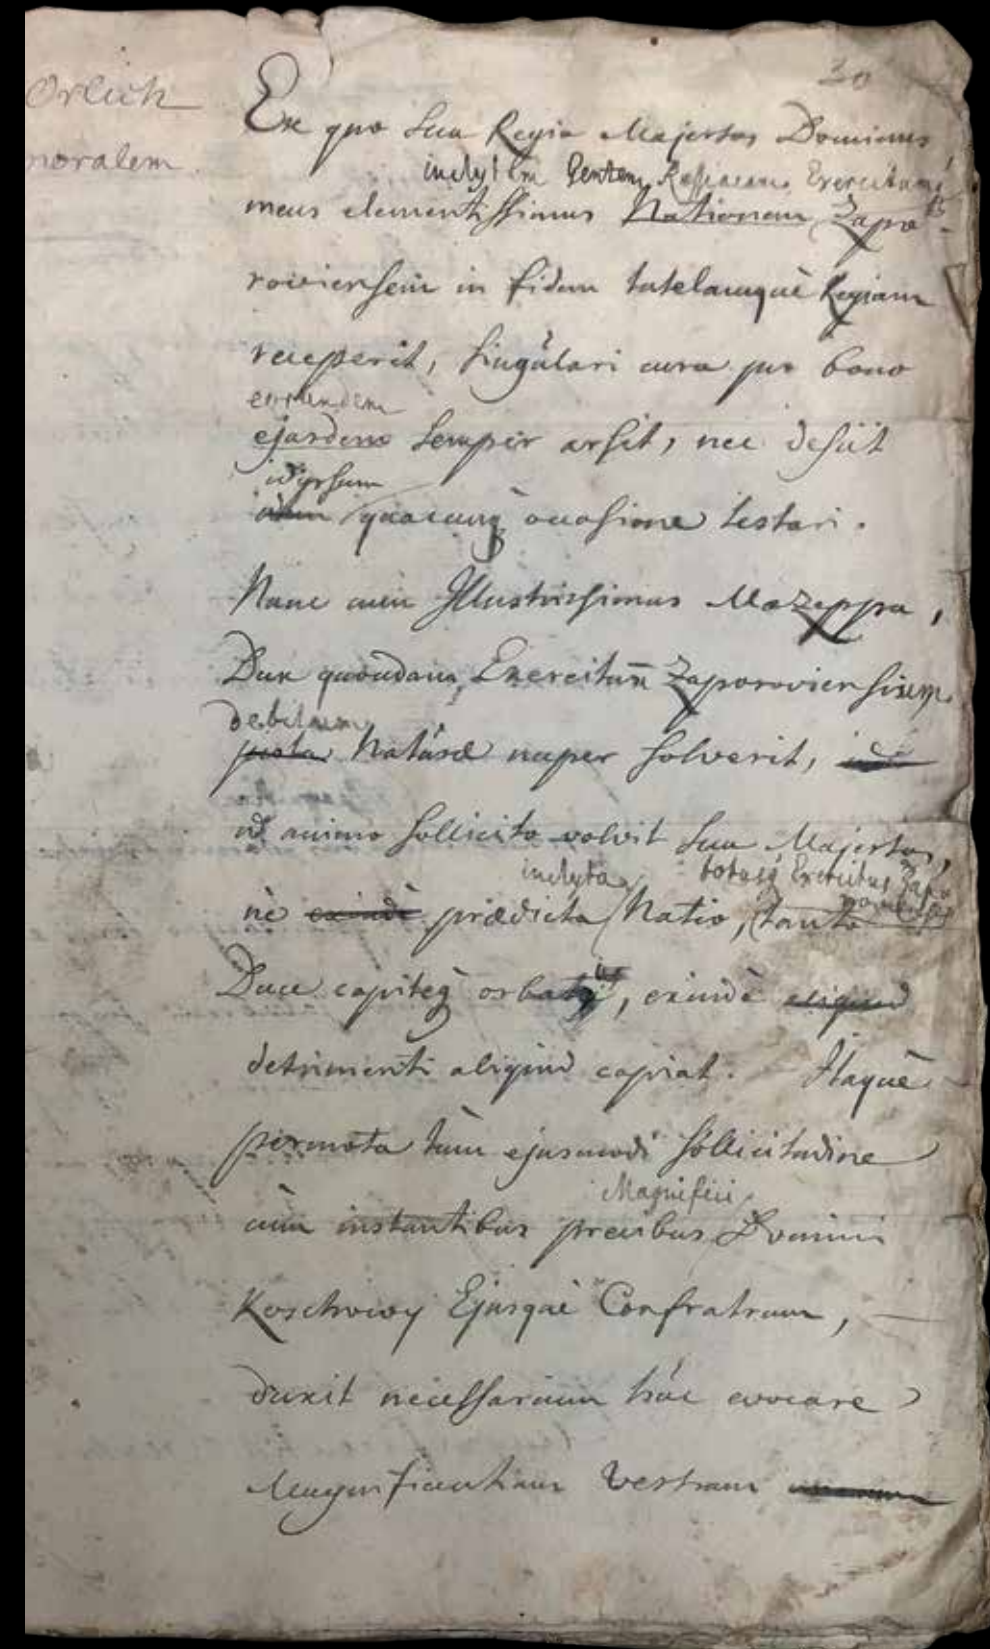 30
Orlich
noralem
Ex quo Sua Regia Majestas Dominus
inclytam Gentem Exercitum
meus clementissimus Nationem Zapo
roviensem in fidem tutelamquè Regiam
receperit, singulari cura pro bono
eorundem
ejusdem semper arsit, nec desiit
id ipsum
quacunq occasione testari.
Nunc cum Illustrissimus Mazeppa,
Dux quondam Exercituum Zaporoviensium
debitum
Naturæ nuper solverit,
id animo sollicito volvit Sua Majestas,
inclyta totusq Exercitus Zapo
nè exindè prædicta Natio, tanto
Duce capiteq orbatus, exindè aliquid
detrimenti aliquid capiat. Itaquè
permota tùm ejusmodi sollicitudine
Magnifici
cùm instantibus precibus Domini
Koschowoy Ejusquè Confratrum,
duxit necessarium hùc evocare
Magnificentiam Vestram